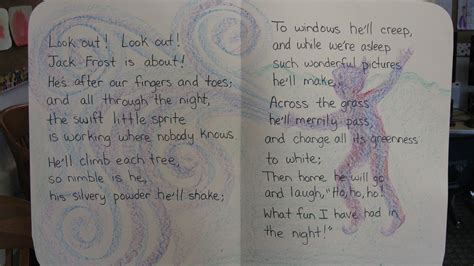 Look out! Look out!
Jack Frost is about!
He's after our fingers and toes;
and all through the night,
the swift little sprite
is working where nobody knows.
He'll climb each tree,
so nimble is he,
his silvery powder he'll shake;
To windows he'll creep,
and while we're asleep
such wonderful pictures
he'll make.
Across the grass
he'll merrily pass,
and change all its greenness
to white;
Then home he will go
and laugh, "Ho, ho, ho!
What fun I have had in
the night!"